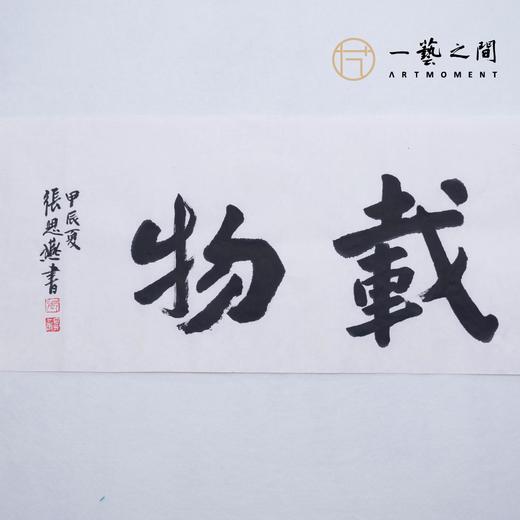 一藝之間
ARTMOMENT
載物
甲辰夏
張思燕書